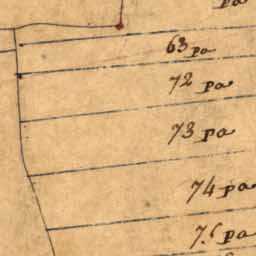 pa
63 pa
72 pa
73 pa
74 pa
pa